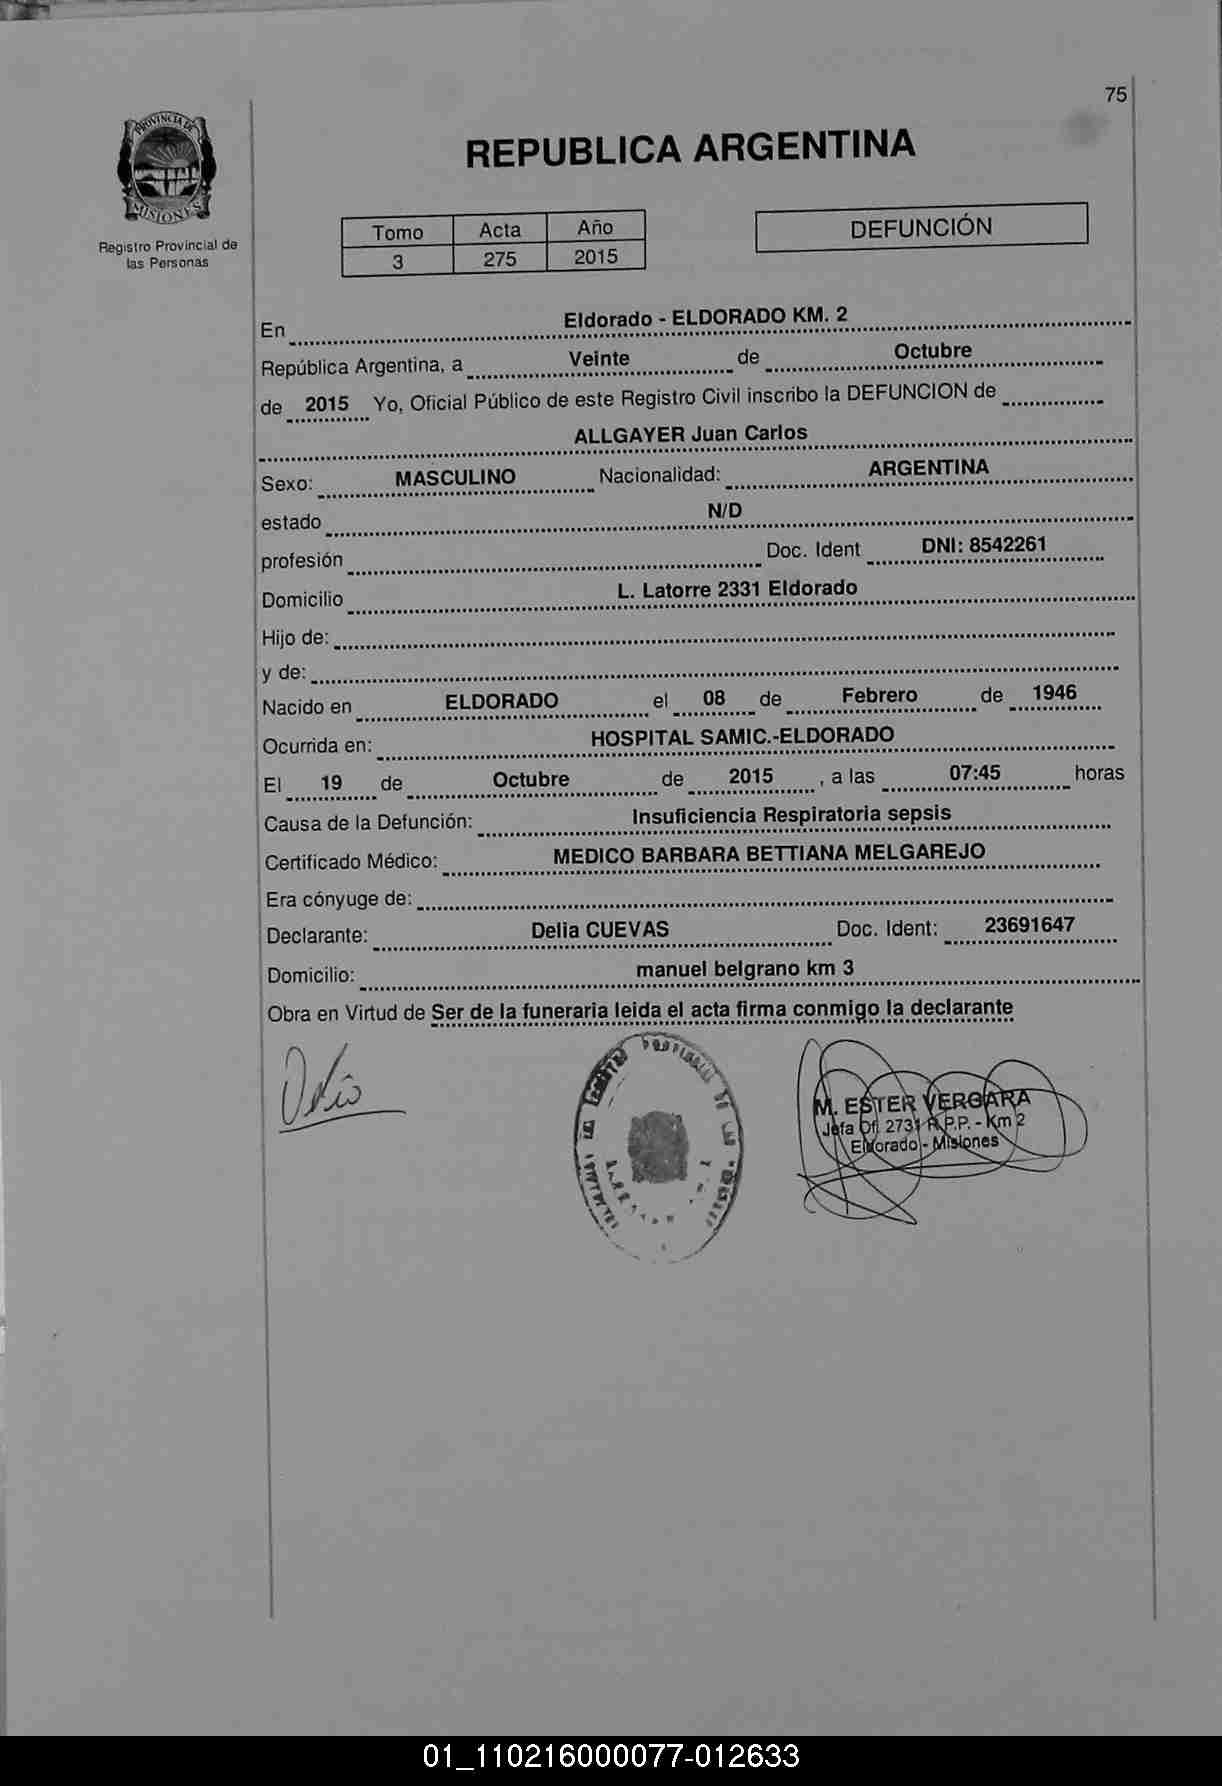 75
PROVINCIA DE
MISIONES
Registro Provincial de
las Personas
REPUBLICA ARGENTINA
Tomo Acta Año
3 275 2015
DEFUNCIÓN
En Eldorado - ELDORADO KM. 2
República Argentina, a Veinte de Octubre
de 2015 Yo, Oficial Público de este Registro Civil inscribo la DEFUNCION de
ALLGAYER Juan Carlos
Sexo: MASCULINO Nacionalidad: ARGENTINA
estado N/D
profesión Doc. Ident DNI: 8542261
Domicilio L. Latorre 2331 Eldorado
Hijo de:
y de:
Nacido en ELDORADO el 08 de Febrero de 1946
Ocurrida en: HOSPITAL SAMIC.-ELDORADO
El 19 de Octubre de 2015 , a las 07:45 horas
Causa de la Defunción: Insuficiencia Respiratoria sepsis
Certificado Médico: MEDICO BARBARA BETTIANA MELGAREJO
Era cónyuge de:
Declarante: Delia CUEVAS Doc. Ident: 23691647
Domicilio: manuel belgrano km 3
Obra en Virtud de Ser de la funeraria leida el acta firma conmigo la declarante
M. ESTER VERGARA
Jefa Of. 2731 R.P.P. - Km 2
Eldorado - Misiones
01_110216000077-012633